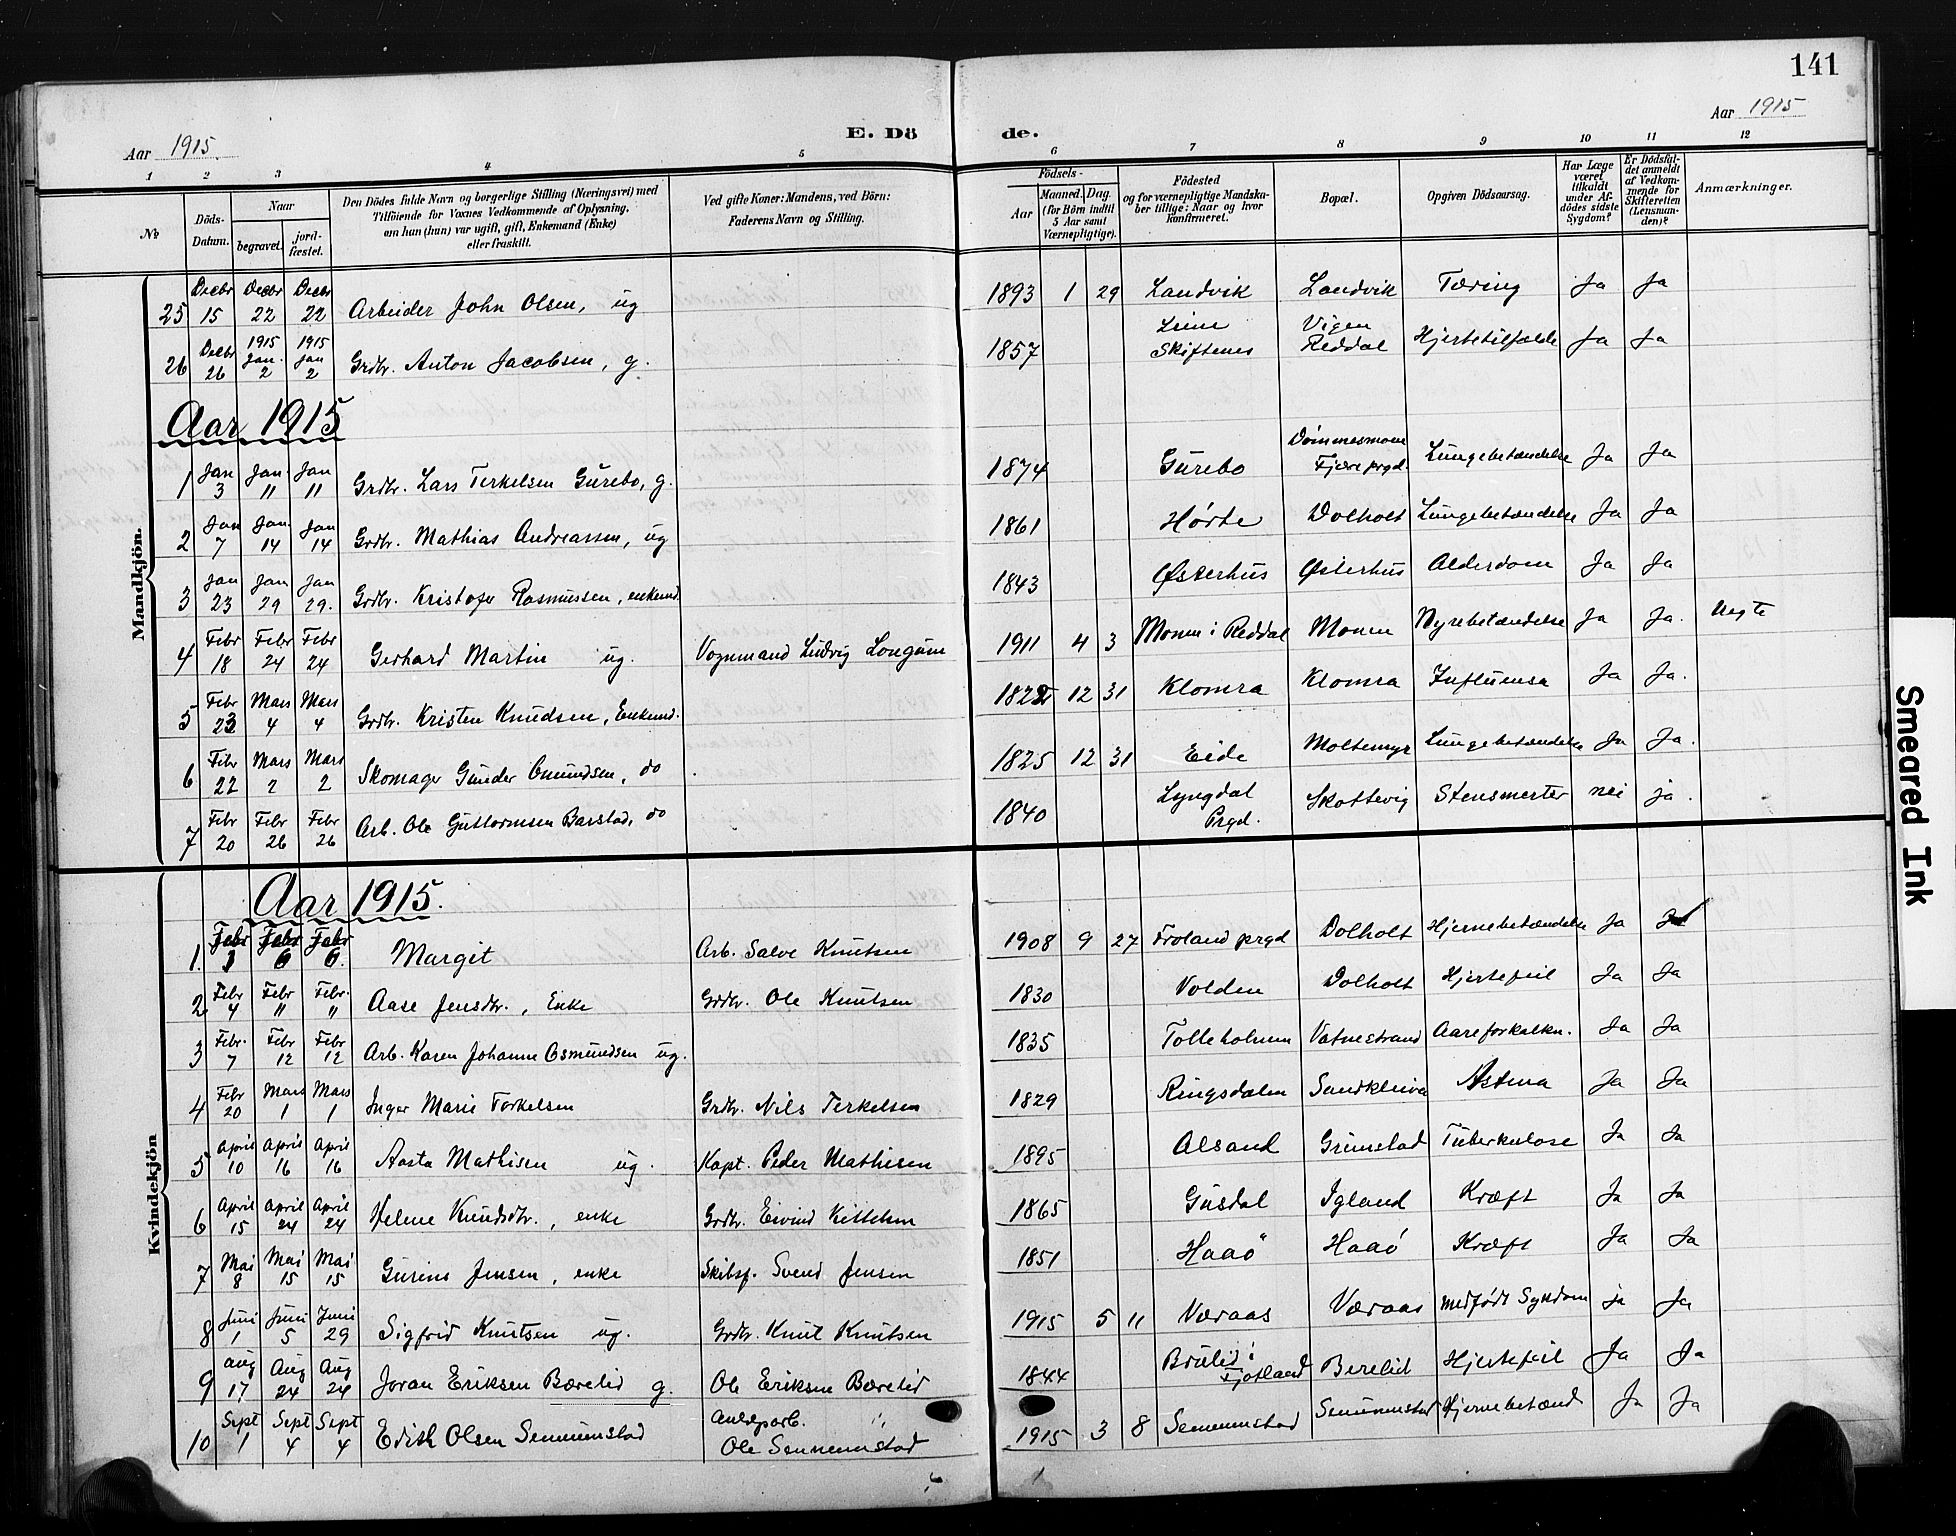 141
Aar 1915.
E. Dö
de.
Aar 1915
1 2 3 4 5 6 7 8 9 10 11 12
No
Döds-Datum.
Naar
begravet.
jord-fæstet.
Den Dödes fulde Navn og borgerlige Stilling (Næringsvei) med
Tilföiende for Voxnes Vedkommende af Oplysning,
om han (hun) var ugift, gift, Enkemand (Enke)
eller fraskilt.
Ved gifte Koner: Mandens, ved Börn:
Faderens Navn og Stilling.
Födsels-
Aar
Maaned.
Dag.
(for Börn indtil
5 Aar samt
Værnepligtige).
Födested
og for værnepligtige Mandska-
ber tillige: Naar og hvor
konfirmeret.
Bopæl.
Opgiven Dödsaarsag.
Har Læge
været
tilkaldt
under Af-
dödes sidste
Sygdom?
Er Dödsfal-
det anmeldt
af Vedkom-
mende for
Skifteretten
(Lensman-
den)?
Anmærkninger.
Mandkjön.
25 Decbr 15 Decbr 22 Decbr 22 Arbeider John Olsen, ug 1893 1 29 Landvik Landvik Tæring Ja Ja
26 Decbr 26 1915 Jan. 2 1915 Jan 2 Grdbr. Anton Jacobsen, g. 1857 Skiftenes Vigen Reddal Hjertetilfælde Ja Ja
Aar 1915
1 Jan 3 Jan. 11 Jan 11 Grdbr. Lars Terkelsen Gurebo, g. 1874 Gurebo Dømmesmoen Fjære prgd. Lungebetændelse Ja Ja
2 Jan 7 Jan. 14 Jan 14 Grdbr. Mathias Andreassen, ug 1861 Hørte Dolholt Lungebetændelse Ja Ja
3 Jan 23 Jan 29 Jan 29. Grdbr. Kristofer Rasmussen, enkemd. 1843 Østerhus Østerhus Alderdom Ja Ja
4 Febr 18 Febr 24 Febr 24 Gerhard Martin ug. Vognmand Ludvig Longum 1911 4 3 Monen i Reddal Monen Nyrebetændelse Ja Ja. Uegte
5 Febr 23 Mars 4 Mars 4 Grdbr. Kristen Knudsen, Enkemd. 12 31 Klomra Klomra Influensa Ja Ja.
6 Febr 22 Mars 2 Mars 2 Skomager Gunder Omundsen, do 1825 12 31 Eide Moltemyr Lungebetændelse Ja Ja.
7 Febr 20 Febr 26 Febr 26 Arb. Ole Guttormsen Barstad, do 1840 Lyngdal Prgd. Skottevig Stensmerter nei ja.
Kvindekjön
Aar 1915.
1. Febr 3 Febr 6 Febr 6. Margit Arb. Salve Knutsen 1908 9 27 Froland prgd Dolholt Hjernebetændelse Ja Ja
2 Febr 4 Febr 11 Febr. 11 Aase Jensdtr., Enke Grdbr. Ole Knutsen 1830 Volden Dolholt Hjertefeil Ja Ja
3 Febr. 7 Febr 12 Febr 12 Arb. Karen Johanne Osmundsen ug. 1835 Tolleholmen Vatnestrand Aareforkalkn. Ja Ja
4 Febr 20 Mars 1 Mars 1 Inger Marie Terkelsen Grdbr. Nils Terkelsen 1829 Ringsdalen Sandkleiva Astma Ja Ja
5 April 10 April 16 April 16 Aasta Mathisen ug. Kapt. Peder Mathisen 1895 Alsand Grimstad Tuberkulose Ja Ja
6 April 15 April 24 April 24 Helene Knudsdtr., enke Grdbr. Eivind Kittelsen 1865 Gusdal Igland Kræft Ja Ja
7 Mai 8 Mai 15 Mai 15 Gurine Jensen, enke Skibsf. Svend Jensen 1851 Haaö Haaö Kræft Ja Ja
8 Juni 1 Juni 5 Juni 29 Sigfrid Knutsen ug. Grdbr. Knut Knutsen 1915 5 11 Væraas Væraas medfödt Sykdom ja Ja
9 Aug 17 Aug 24 Aug 24 Joran Eriksen Bærelid g. Ole Eriksen Bærelid 1844 Brulid i Fjotland Berelid Hjertefeil Ja Ja
10 Sept 1 Sept 4 Sept 4 Edith Olsen Sennumstad Anlægsarb. Ole Sennumstad 1915 3 8 Sennumstad Sennumstad Hjernebetænd Ja Ja
Smeared Ink